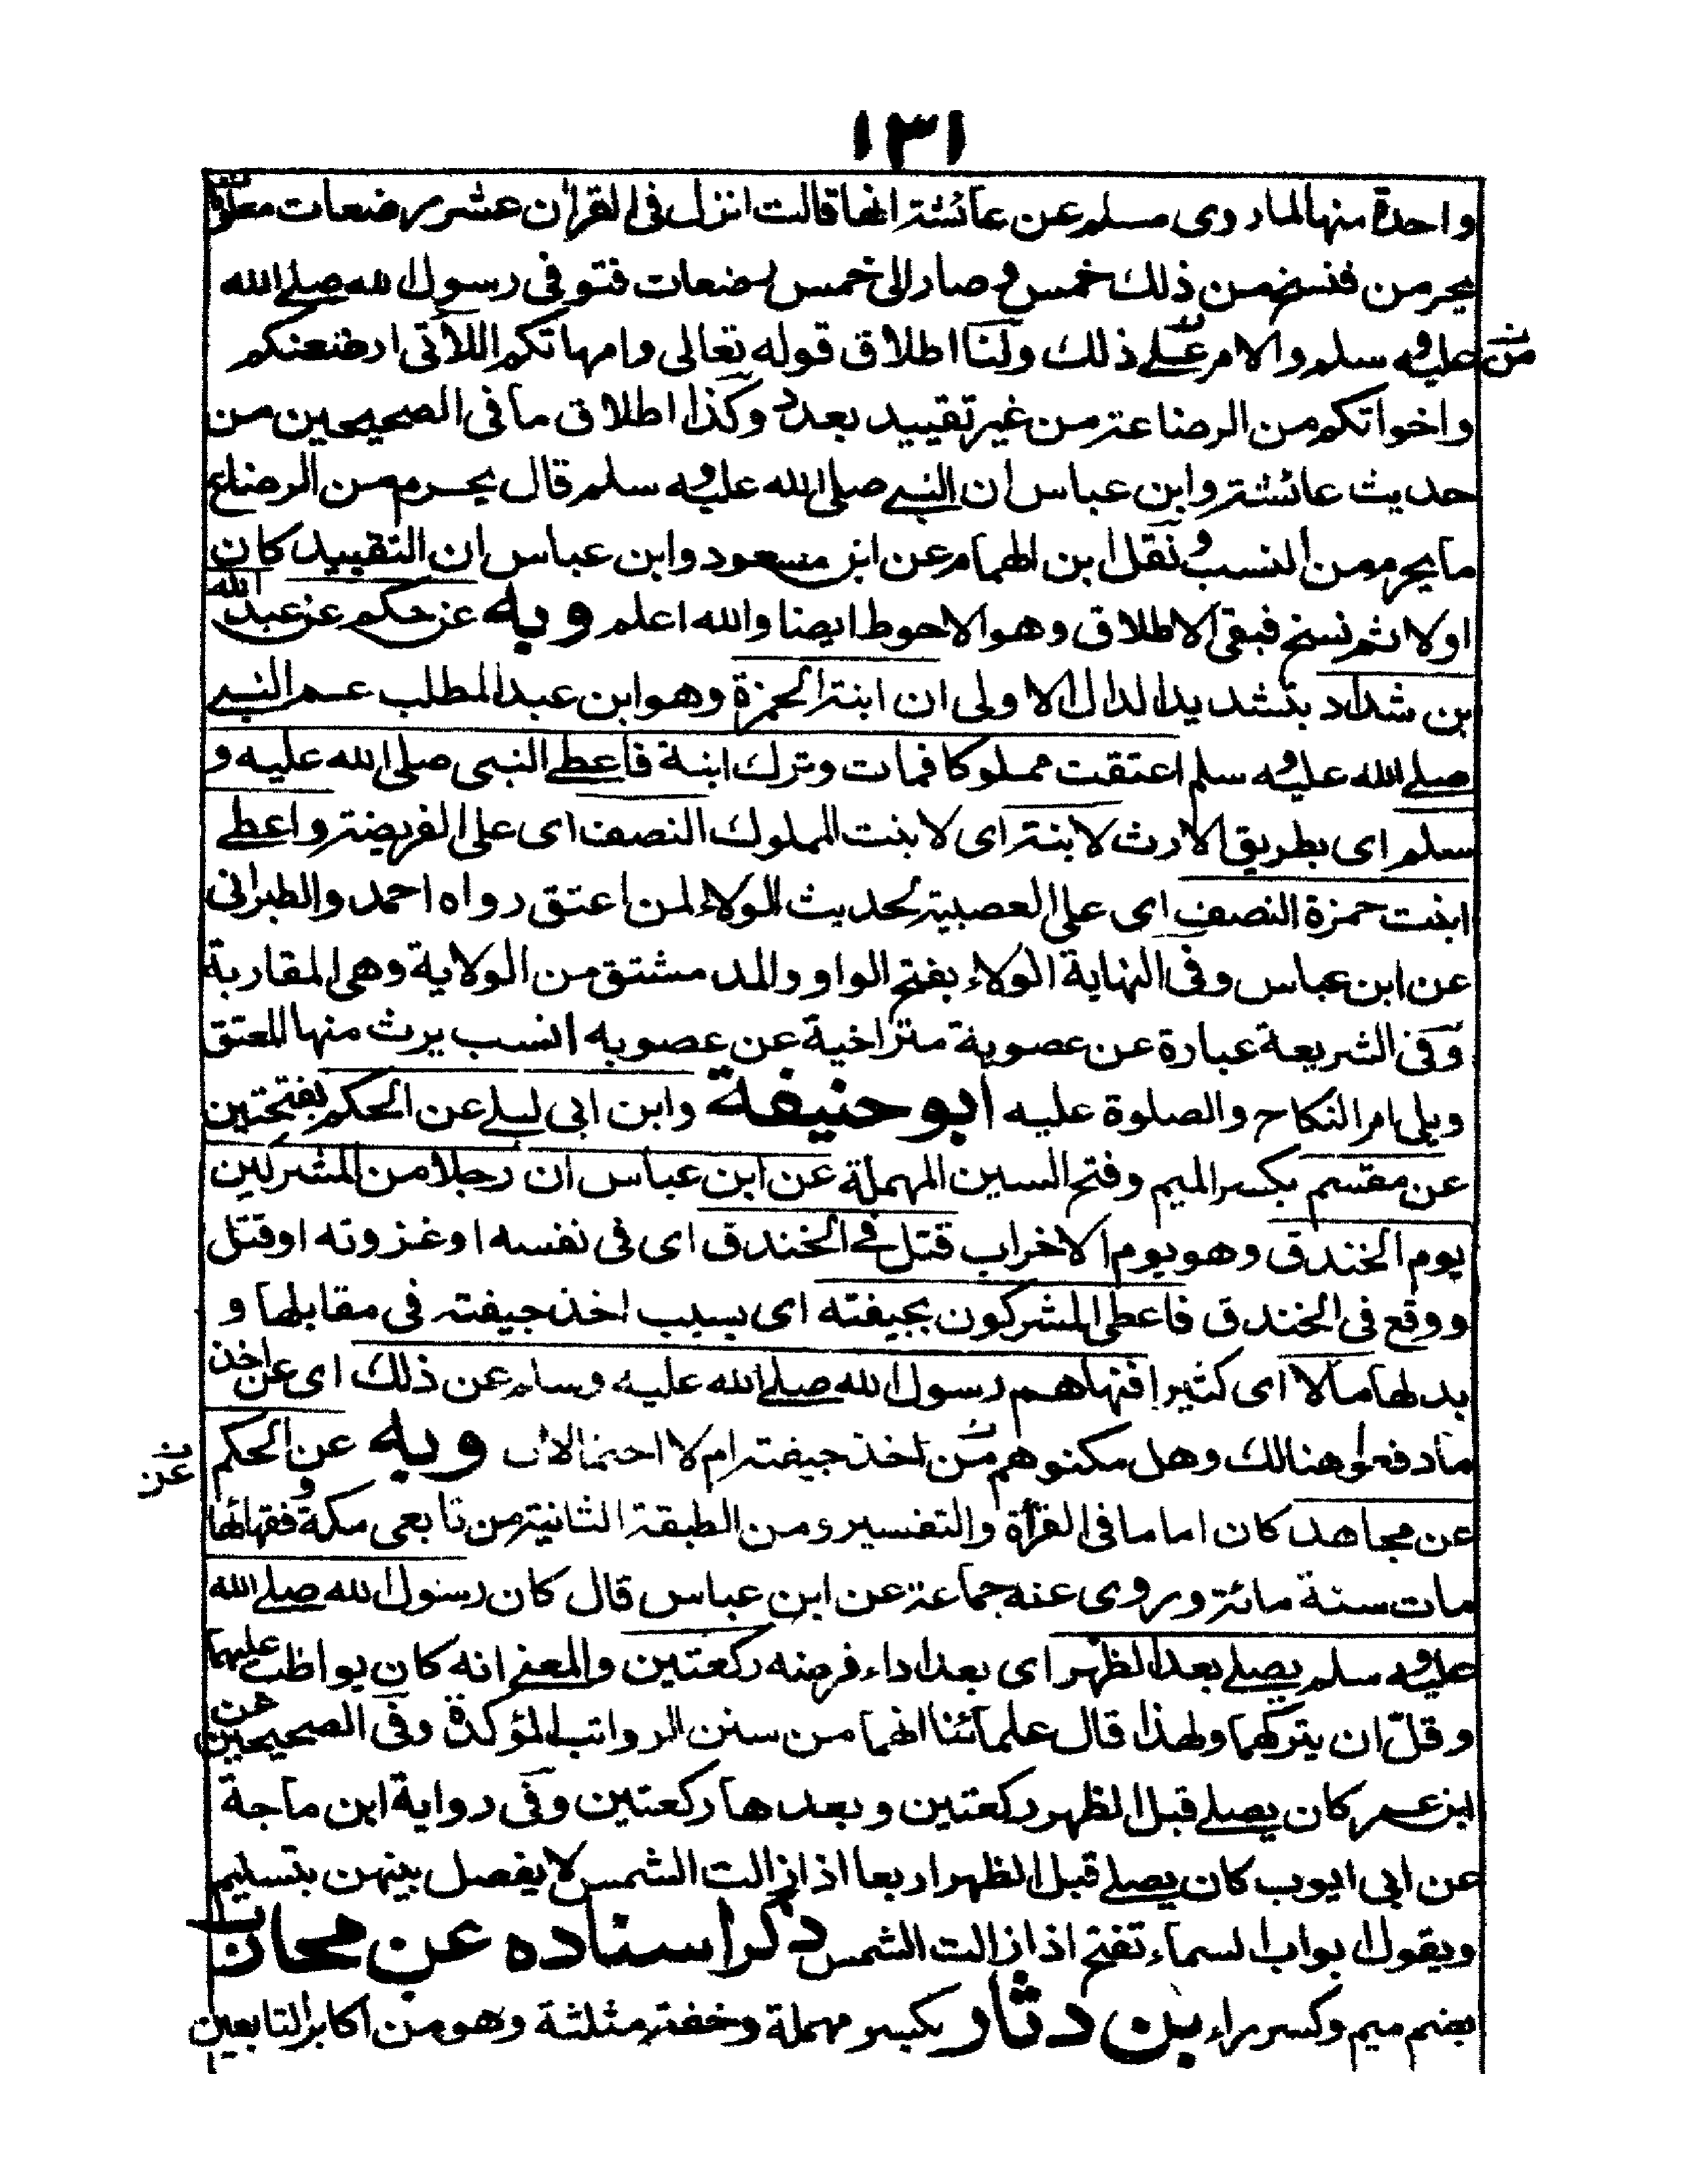 ١٣١
واحدة منها لما روى مسلم عن عائشة انها قالت انزل فى القرآن عشر رضعات معلومات
يحرمن فنسخ من ذلك خمس وصار الى خمس رضعات فتوفى رسول الله صلى الله
عليه و سلم والامر على ذلك ولنا اطلاق قوله تعالى وامهاتكم اللآتى ارضعنكم
واخواتكم من الرضاعة من غير تقييد بعدد وكذا اطلاق ما فى الصحيحين من
حديث عائشة وابن عباس ان النبى صلى الله عليه و سلم قال يحرم من الرضاع
ما يحرم من النسب ونقل ابن الهمام عن ابن مسعود وابن عباس ان التقييد كان
اولا ثم نسخ فبقى الاطلاق وهو الاحوط ايضا والله اعلم وبه عن حكم عن عبد الله
بن شداد بتشديد الدال الاولى ان ابنة الحمزة وهو ابن عبد المطلب عم النبى
صلى الله عليه و سلم اعتقت مملوكا فمات وترك ابنة فاعطى النبى صلى الله عليه و
سلم اى بطريق الارث لابنة اى لابنت المملوك النصف اى على الفريضة واعطى
ابنت حمزة النصف اى على العصبية لحديث الولاء لمن اعتق رواه احمد والطبرانى
عن ابن عباس وفى النهاية الولاء بفتح الواو والمد مشتق من الولاية وهى المقاربة
وفى الشريعة عبارة عن عصوبة متراخية عن عصوبه انسب يرث منها المعتق
ويلى امر النكاح والصلوة عليه ابو حنيفة وابن ابى ليلى عن الحكم بفتحتين
عن مقسم بكسر الميم وفتح السين المهملة عن ابن عباس ان رجلا من المشركين
يوم الخندق وهو يوم الاخراب قتل فى الخندق اى فى نفسه او غزوته او قتل
ووقع فى الخندق فاعطى المشركون بجيفته اى بسبب اخذ جيفته فى مقابلها و
بدلها مالا اى كثيرا فنهاهم رسول الله صلى الله عليه وسلم عن ذلك اى عن اخذ
ما دفعوا هنالك وهل مكنوهم من اخذ جيفته ام لا احتمالان وبه عن الحكم
عن مجاهد كان اماما فى القرأة والتفسير ومن الطبقة الثانية من تابعى مكة وفقهائها
مات سنة مائة وروى عنه جماعة عن ابن عباس قال كان رسول الله صلى الله
عليه و سلم يصلى بعد الظهر اى بعد اداء فرضه ركعتين والمعنى انه كان يواظب عليهما
وقل ان يتركهما ولهذا قال علمائنا انهما من سنن الرواتب المؤكدة وفى الصحيحين عن
ابن عمر كان يصلى قبل الظهر ركعتين وبعدها ركعتين وفى رواية ابن ماجة
عن ابى ايوب كان يصلى قبل الظهر اربعا اذا زالت الشمس لا يفصل بينهن بتسليم
ويقول ابواب السماء تفتح اذا زالت الشمس ذكر اسناده عن محارب
بضم ميم وكسر راء بن دثار بكسر مهملة وخفة مثلثة وهو من اكابر التابعين